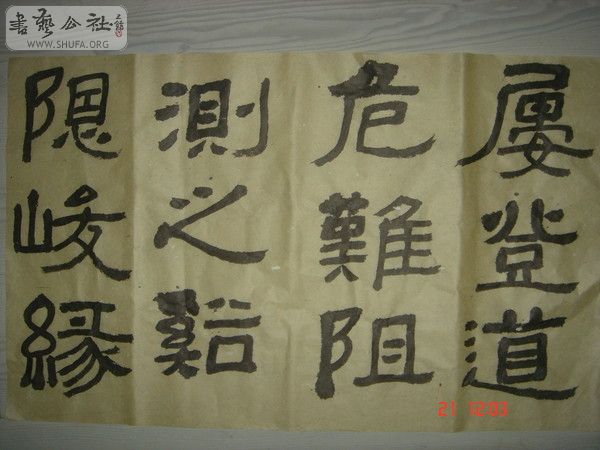 書藝公社
WWW.SHUFA.ORG
屢登道
危難阻
測之谿
隐峻緣
21 12:03